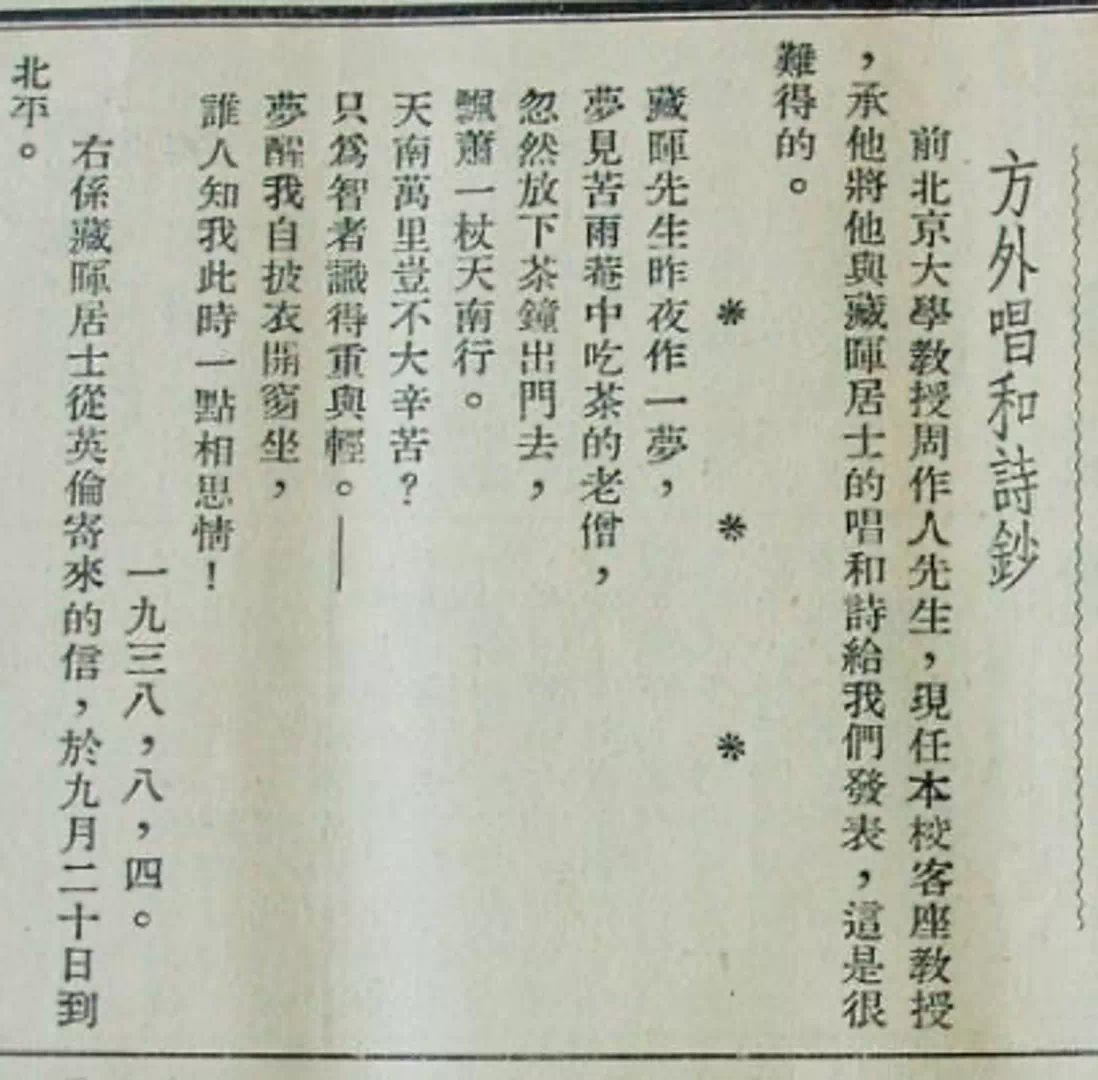 方外唱和詩鈔
前北京大學教授周作人先生，現任本校客座教授
，承他將他與藏暉居士的唱和詩給我們發表，這是很
難得的。
＊＊＊
藏暉先生昨夜作一夢，
夢見苦雨菴中吃茶的老僧，
忽然放下茶鐘出門去，
飄蕭一杖天南行。
天南萬里豈不大辛苦？
只爲智者識得重與輕。——
夢醒我自披衣開窗坐，
誰人知我此時一點相思情！
一九三八，八，四。
右係藏暉居士從英倫寄來的信，於九月二十日到
北平。